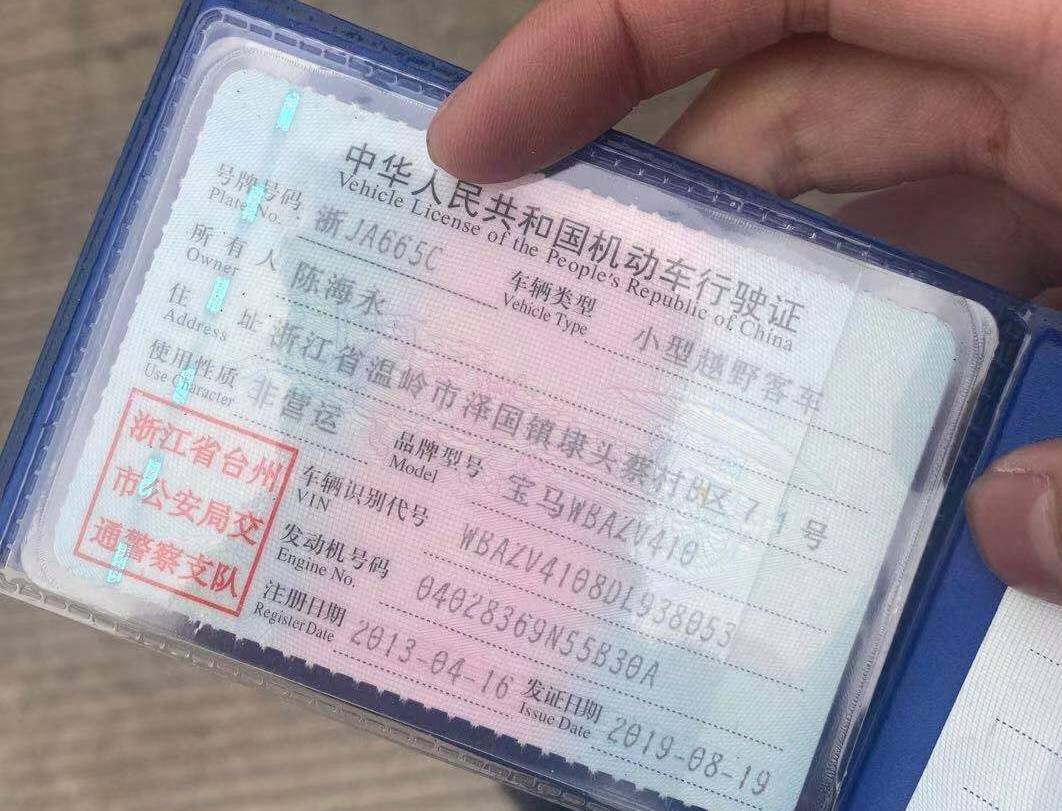 中华人民共和国机动车行驶证
Vehicle License of the People's Republic of China
号牌号码 浙JA665C 车辆类型 小型越野客车
Plate No. Vehicle Type
所有人 陈海永
Owner
住址 浙江省温岭市泽国镇埭头蔡村B区 7 1号
Address
使用性质 非营运 品牌型号 宝马WBAZV410
Use Character Model
浙江省台州
市公安局交
通警察支队
车辆识别代号 WBAZV4108DL938053
VIN
发动机号码 04028369N55B30A
Engine No.
注册日期 2013-04-16 发证日期 2019-08-19
Register Date Issue Date